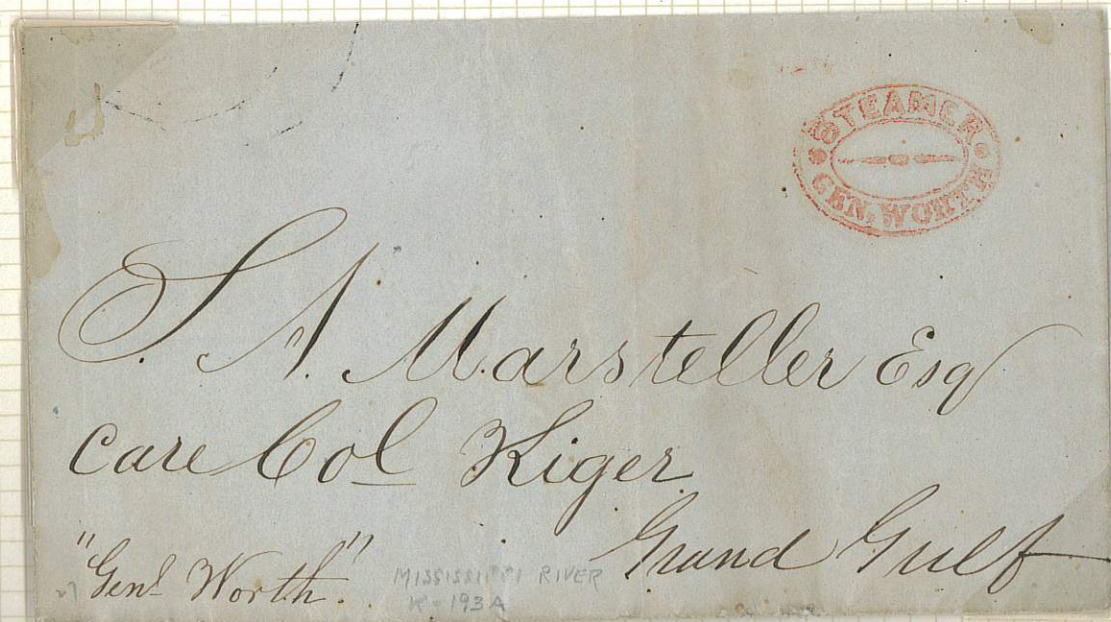 STEAMER
GEN. WORTH
S. A. Marsteller Esq
care Col Kiger
Grand Gulf
"Genl Worth"
MISSISSIPPI RIVER
K-193A